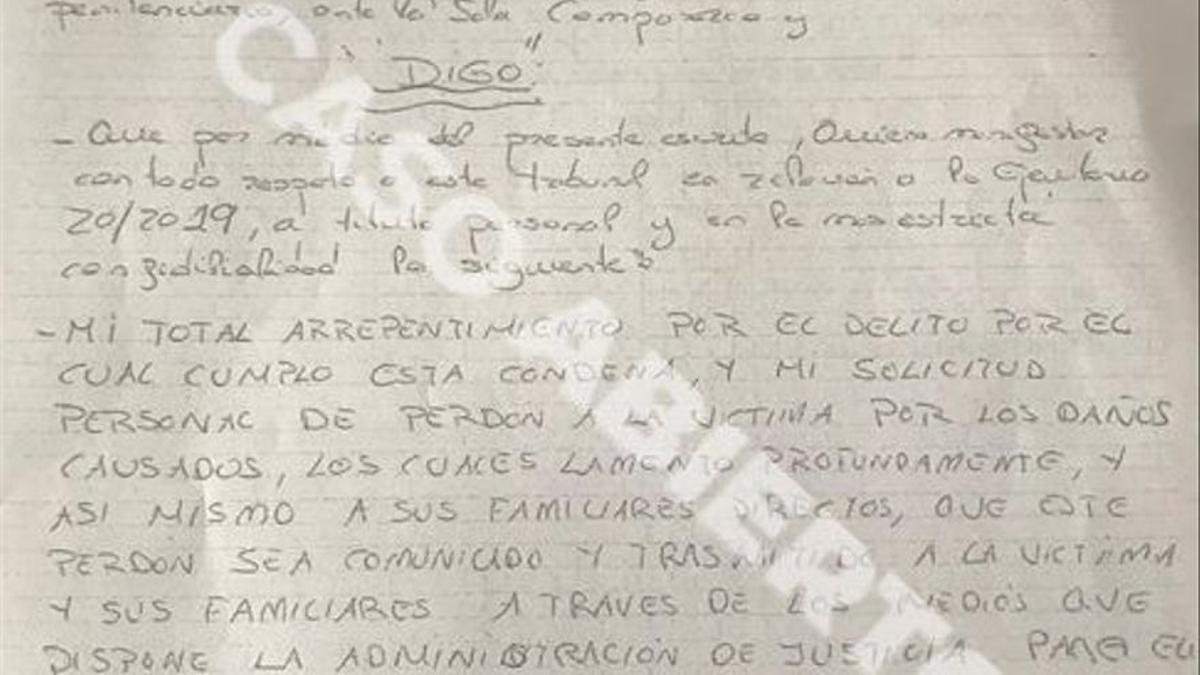 penitenciario, ante la Sala Comparezco y
"DIGO":
- Que por medio del presente escrito, Quiero manifestar
con todo respeto a este tribunal en relación a la Ejecutoria
20/2019, a título personal y en la mas estricta
confidencialidad lo siguiente:
- MI TOTAL ARREPENTIMIENTO POR EL DELITO POR EL
CUAL CUMPLO ESTA CONDENA, Y MI SOLICITUD
PERSONAL DE PERDON A LA VICTIMA POR LOS DAÑOS
CAUSADOS, LOS CUALES LAMENTO PROFUNDAMENTE, Y
ASI MISMO A SUS FAMILIARES DIRECTOS, QUE ESTE
PERDON SEA COMUNICADO Y TRASMITIDO A LA VICTIMA
Y SUS FAMILIARES A TRAVES DE LOS MEDIOS QUE
DISPONE LA ADMINISTRACIÓN DE JUSTICIA PARA EL
CASO ABIERTO